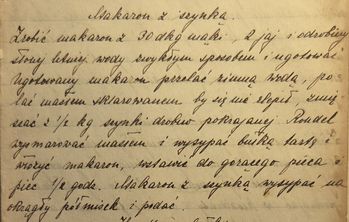 Makaron z szynką.
Zrobić makaron z 30 dkg mąki, 2 jaj i odrobiny
słonej letniej wody zwykłym sposobem i ugotować
Ugotowany makaron przelać zimną wodą, po-
lać masłem sklarowanem by się nie zlepił, zmie-
szać z ½ kg szynki drobno pokrajanej. Rondel
wysmarować masłem i wysypać bułką tartą i
włożyć makaron, wstawić do gorącego pieca i
piec ½ godz. Makaron z szynką wysypać na
okrągły półmisek i podać.